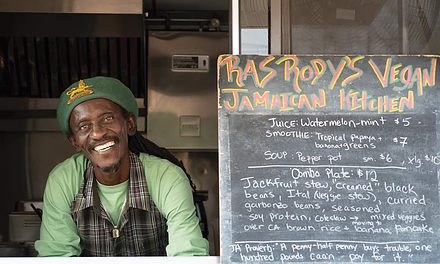 RAS RODY'S VEGAN
JAMAICAN KITCHEN
JUICE: Watermelon-mint $5
SMOOTHIE: Tropical Papaya +
banana+greens $7
SOUP: Pepper pot sm $6, xlg $1
Combo Plate: $12
Jackfruit stew, "creamed" black
beans, Ital (veggie stew), curried
garbonzo beans, seasoned
soy protein, Coleslaw → mixed veggies
over CA brown rice + banana pancake
JA Proverb: "A penny-half penny buys trouble, one
hundred pounds caan pay for it."